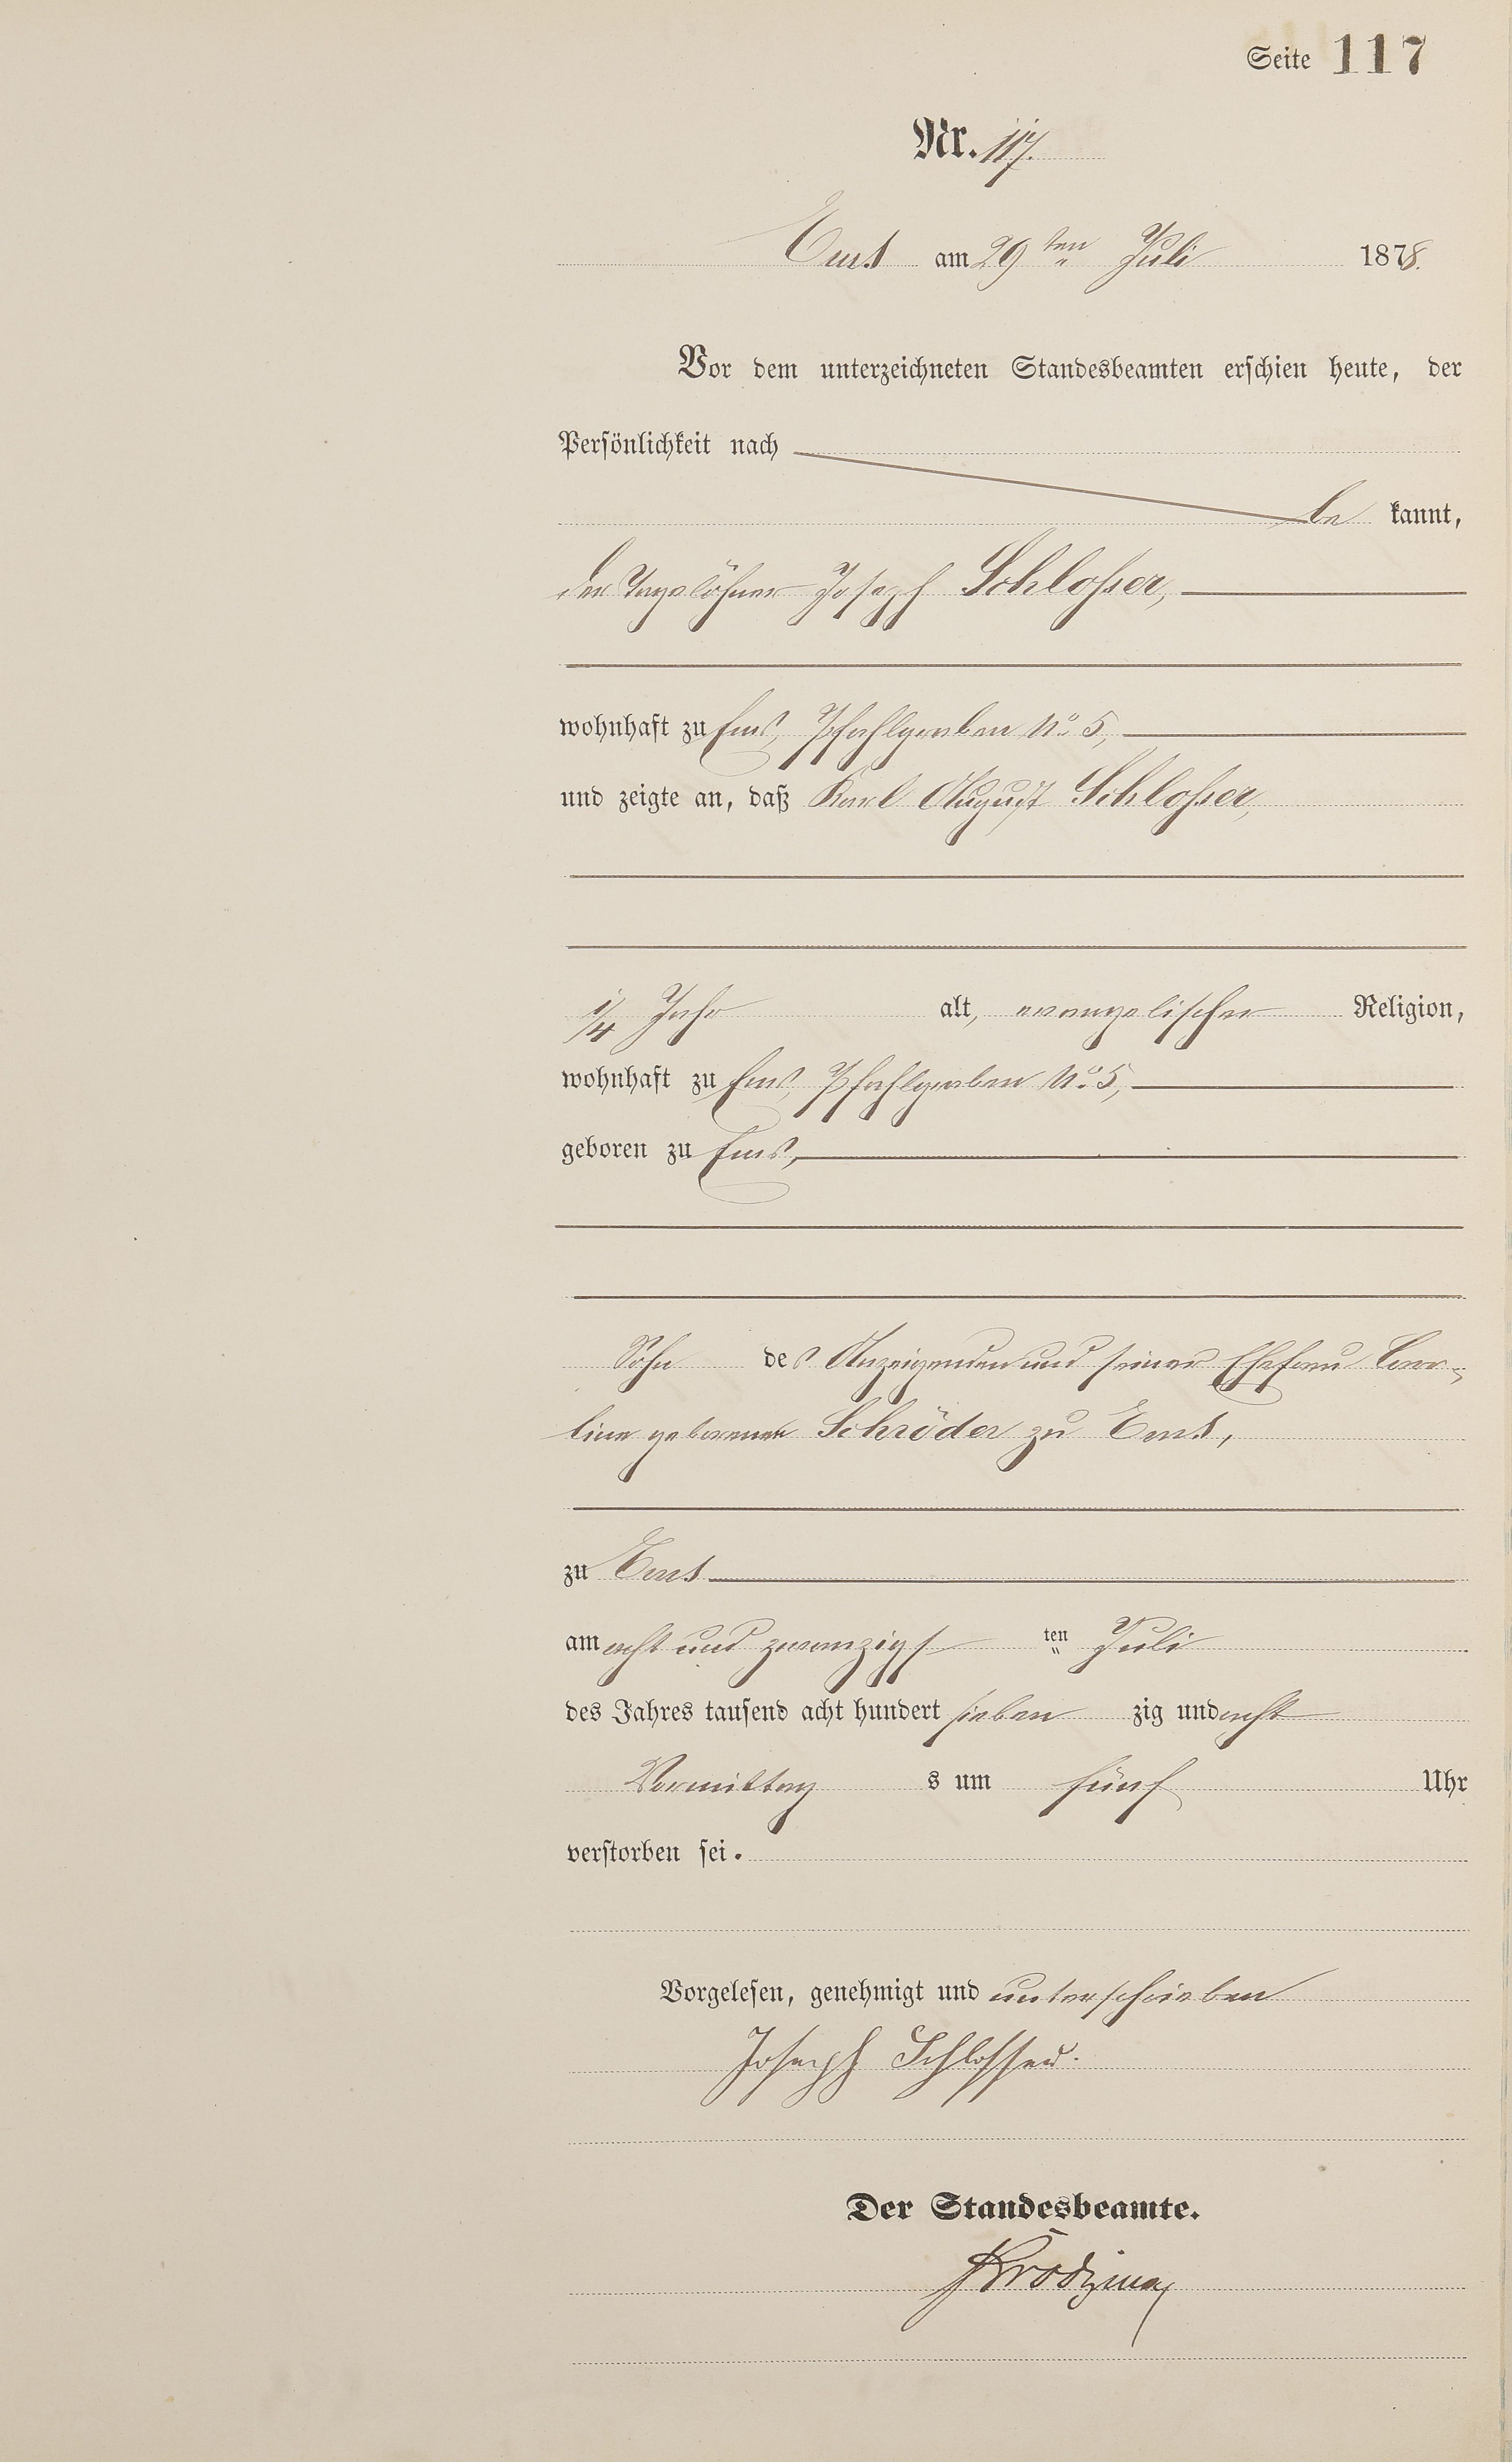 Seite 117
Nr. 117.
Ems am 29ten Juli 1878.
Vor dem unterzeichneten Standesbeamten erschien heute, der
Persönlichkeit nach
be kannt,
der Tagelöhner Joseph Schlosser,
wohnhaft zu Ems, Pfahlgraben No. 5,
und zeigte an, daß Karl August Schlosser,
1/4 Jahr alt, evangelischer Religion,
wohnhaft zu Ems, Pfahlgraben No. 5,
geboren zu Ems,
Sohn des Anzeigenden und seiner Ehefrau Caro-
line geborenen Schröder zu Ems,
zu Ems
am acht und zwanzigst ten Juli
des Jahres tausend acht hundert sieben zig und acht
Vormittag s um fünf Uhr
verstorben sei.
Vorgelesen, genehmigt und unterschrieben
Joseph Schlosser.
Der Standesbeamte.